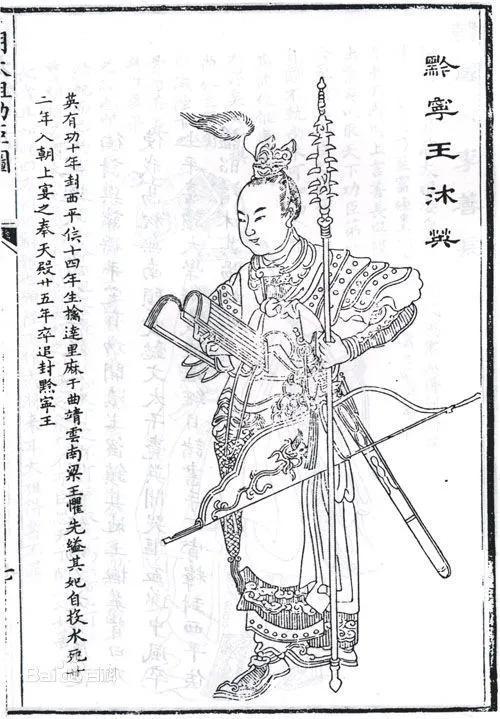 黔寧王沐英
英有功十年封西平侯十四年生擒達里麻于曲靖雲南梁王懼先縊其妃自投水死廿
二年入朝上宴之奉天殿廿五年卒追封黔寧王
明太祖功臣圖
Baidu百科